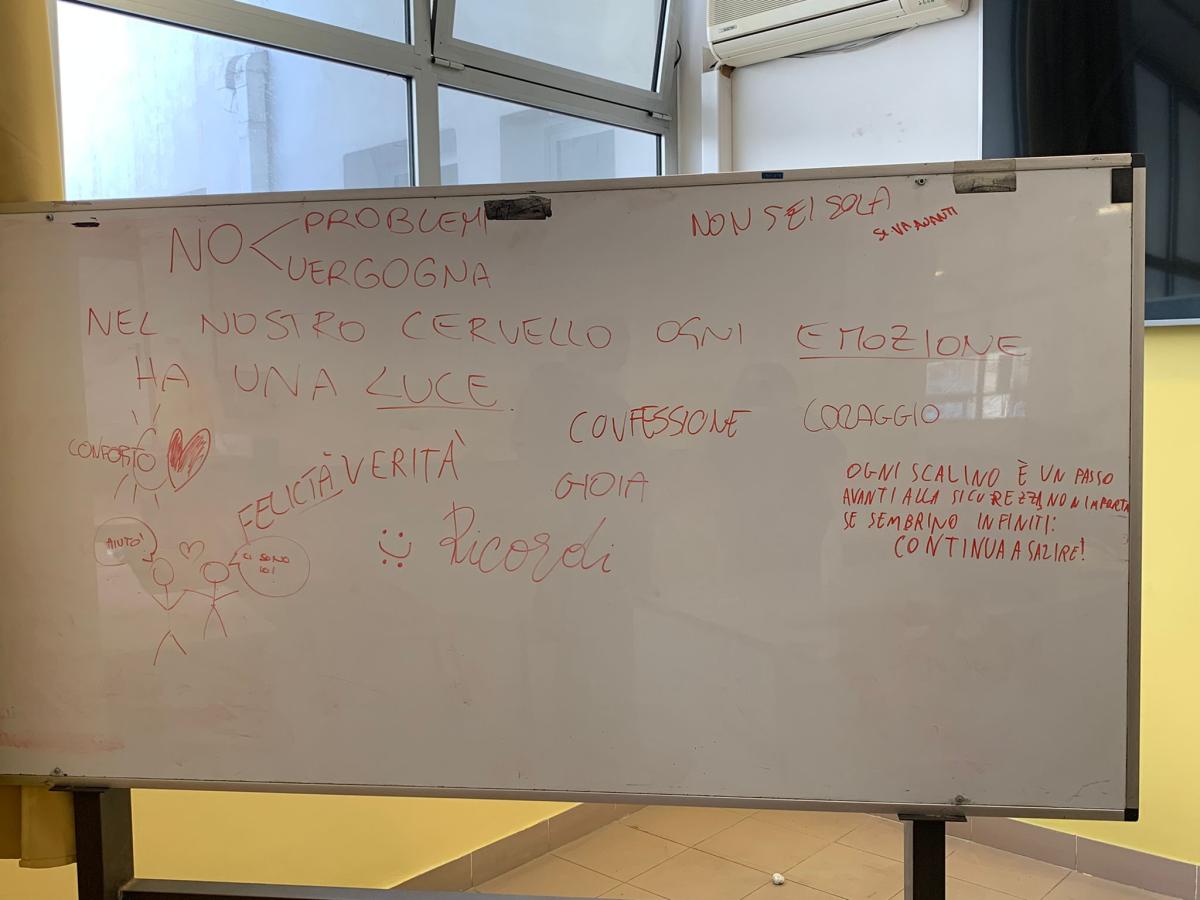 NO
PROBLEMI
VERGOGNA
NON SEI SOLA
SI VA AVANTI
NEL NOSTRO CERVELLO OGNI EMOZIONE
HA UNA LUCE.
CONFESSIONE
CORAGGIO
CONFORTO
FELICITÀ
VERITÀ
GIOIA
OGNI SCALINO È UN PASSO
AVANTI ALLA SICUREZZA, NON IMPORTA
SE SEMBRINO INFINITI:
CONTINUA A SALIRE!
AIUTO!
CI SONO
IO!
Ricordi